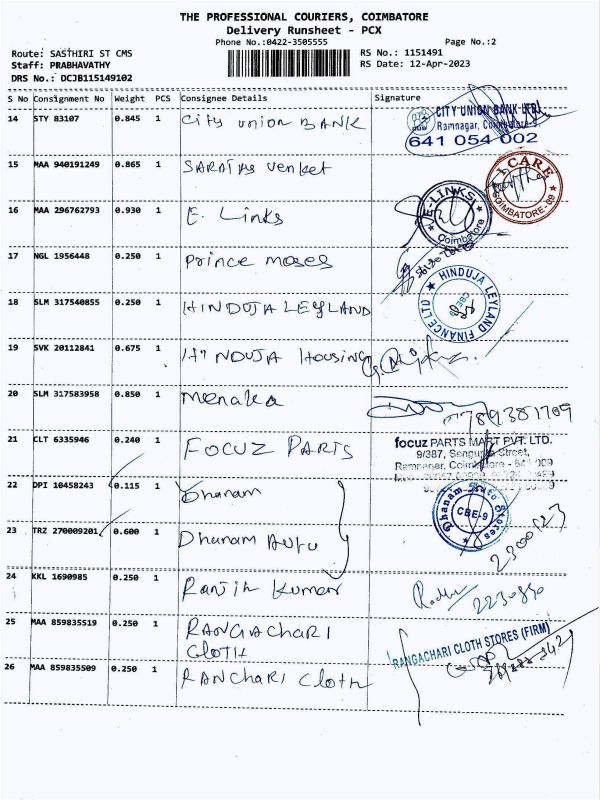 THE PROFESSIONAL COURIERS, COIMBATORE
Delivery Runsheet - PCX
Phone No.:0422-3505555 Page No.:2
Route: SASTHIRI ST CMS RS No.: 1151491
Staff: PRABHAVATHY RS Date: 12-Apr-2023
DRS No.: DCJB115149102
S No Consignment No Weight PCS Consignee Details Signature
14 STY 83107 0.845 1 City union BANK
CITY UNION BANK LTD
Ramnagar, Coimbatore
641 054 002
15 MAA 940191249 0.865 1 venket
I CARE
COIMBATORE-09
16 MAA 296762793 0.930 1 E. Links
E-LINKS
Coimbatore
17 NGL 1956448 0.250 1 Prince moses
18 SLM 317540855 0.250 1 HINDUJA LEYLAND
HINDUJA LEYLAND FINANCE LTD
19 SVK 20112841 0.675 1 HINDUJA HOUSING
20 SLM 317583958 0.850 1 Menaka
7789381709
21 CLT 6335946 0.240 1 FOCUZ PARTS
focuz PARTS MART PVT. LTD.
9/387, Sengupta Street,
Ramnagar, Coimbatore - 641 009
22 DPI 10458243 0.115 1 Dhanam
Dhanam Auto Stores
CBE-9
23 TRZ 270009201 0.600 1 Dhanam Auto
24 KKL 1690985 0.250 1 Ranjih Kumar
25 MAA 859835519 0.250 1 RANGACHARI
CLOTH
RANGACHARI CLOTH STORES (FIRM)
26 MAA 859835509 0.250 1 RANCHARI Cloth